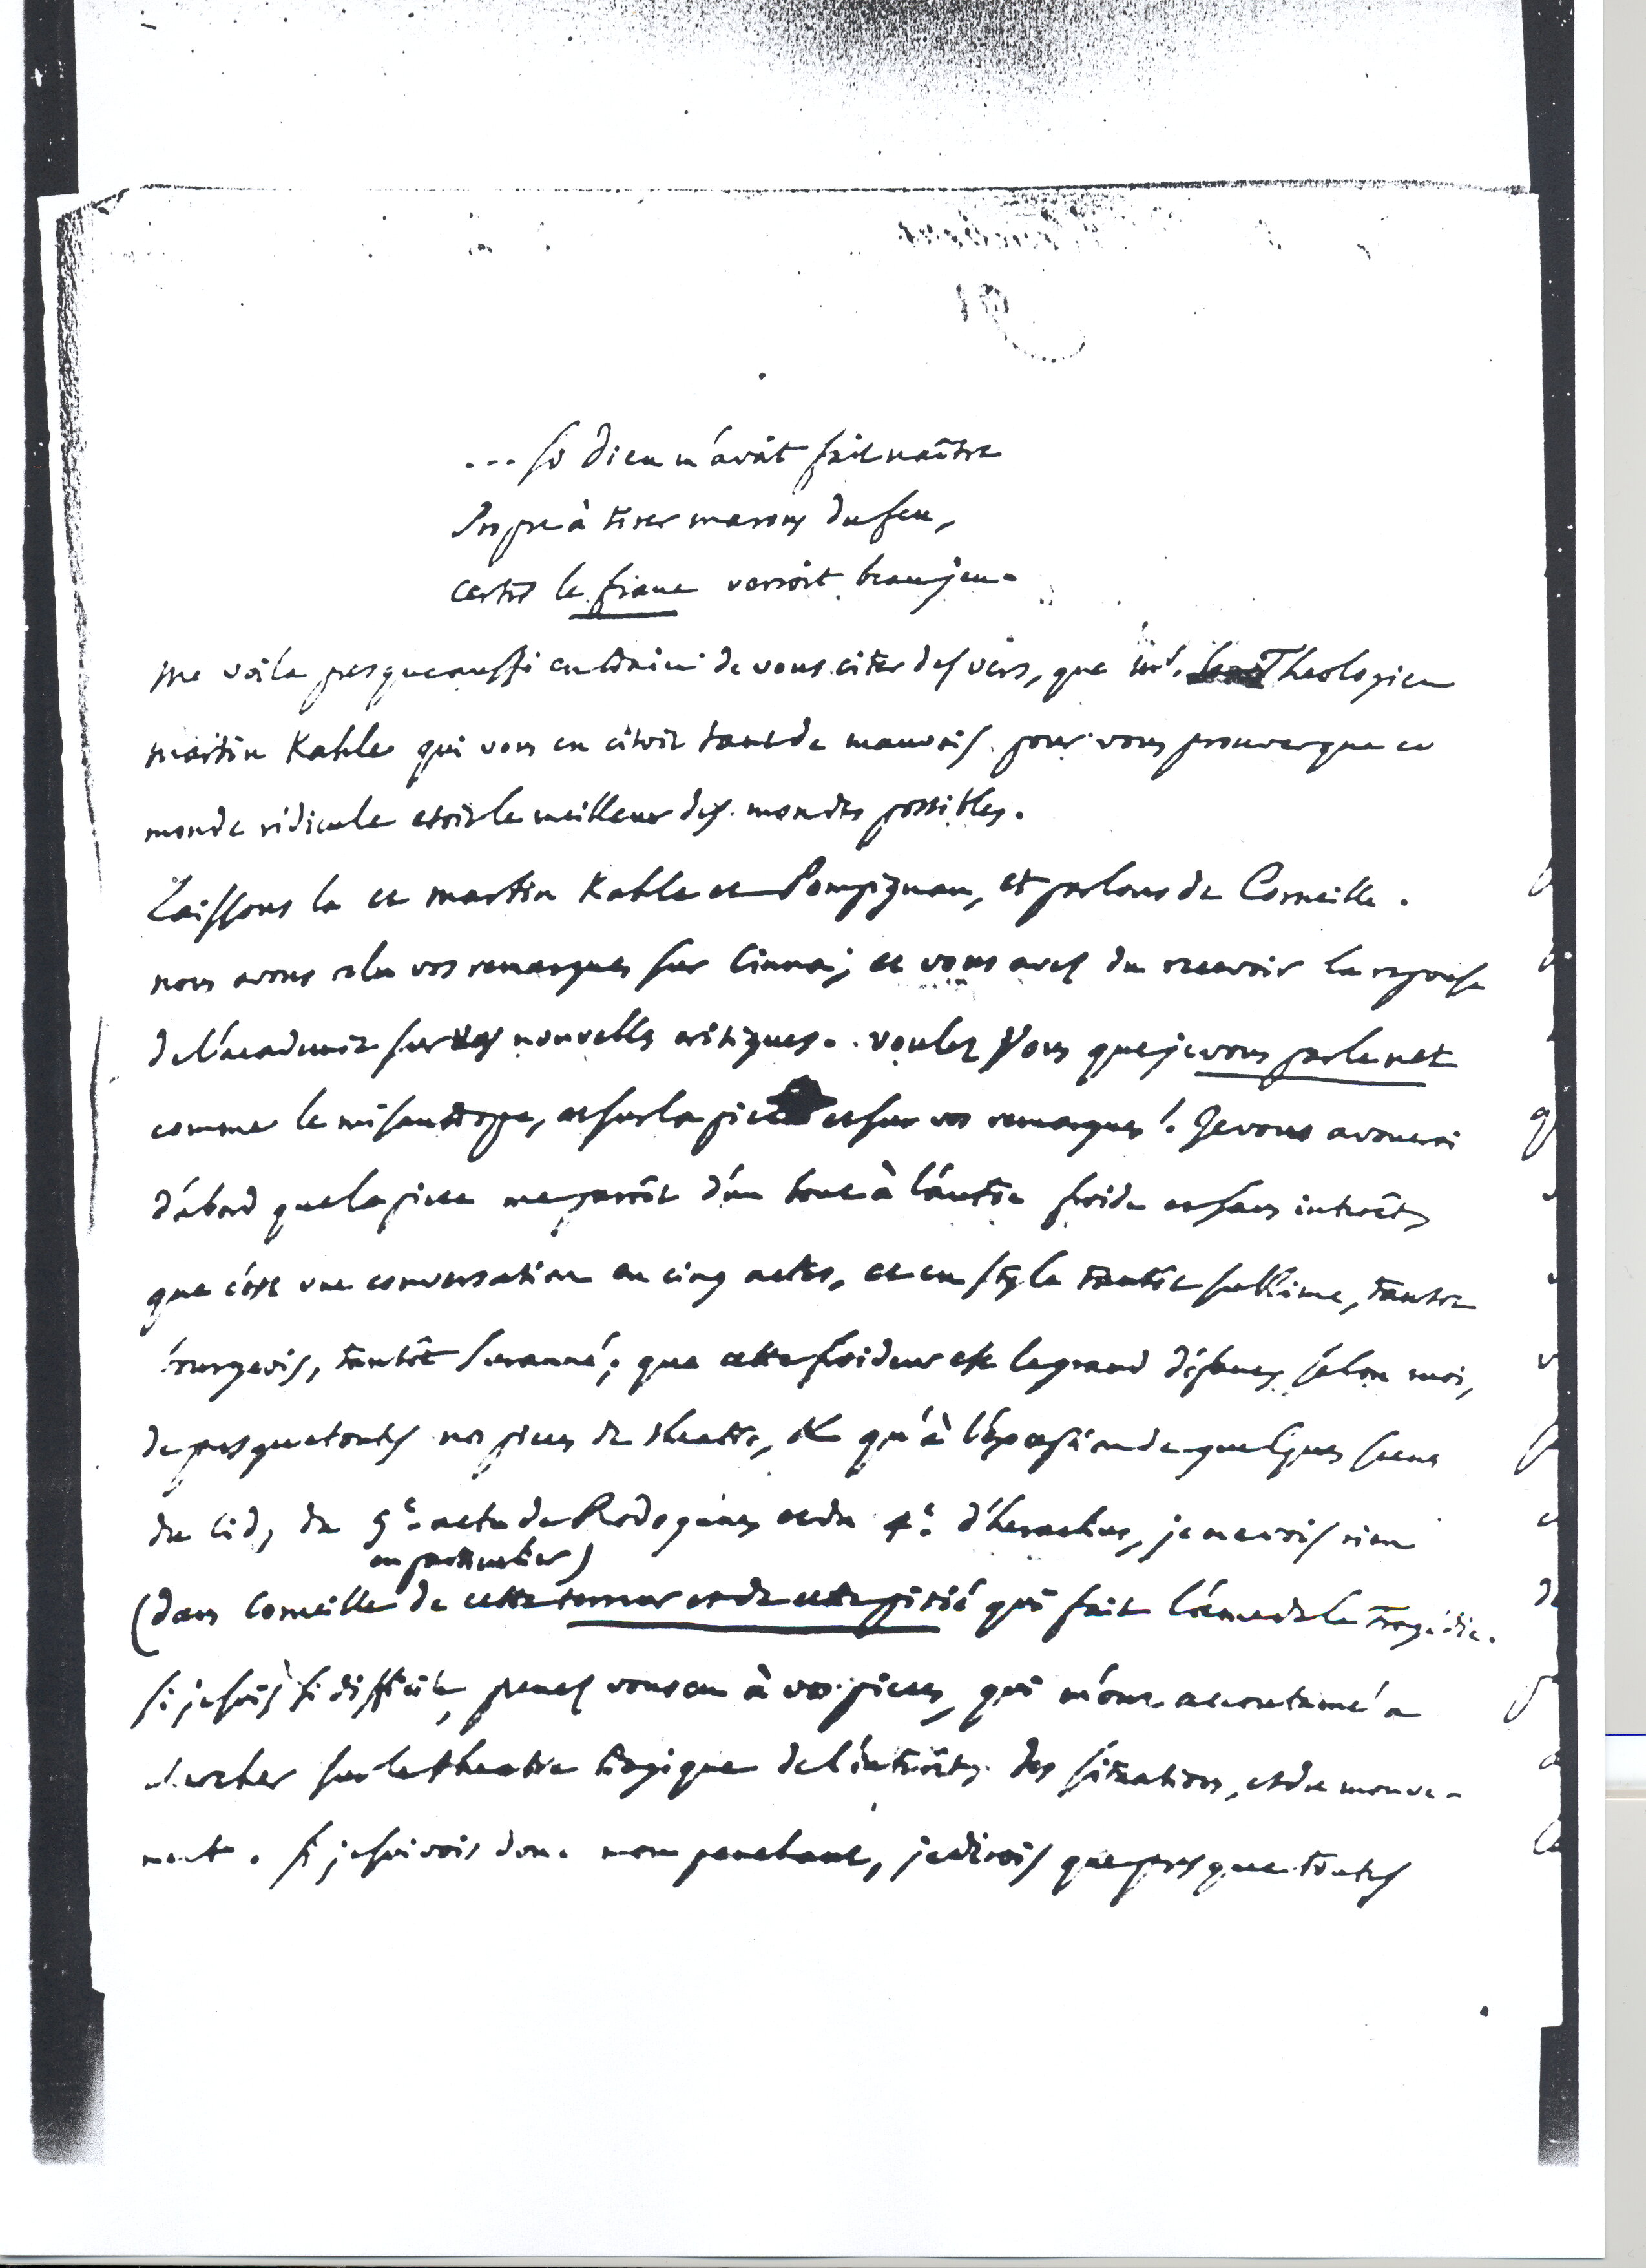 ... si dieu m'avoit fait naître
Propre à tirer marons du feu,
Certes le fiane verroit beau jeu.
me voila presque aussi en train de vous citer des vers, que mr. Theologien
martin Kahle qui vous en citoit tant de mauvais pour vous prouver que ce
monde ridicule etoit le meilleur des mondes possibles.
Laissons la et martin Kahle et Pompignan, et parlons de Corneille.
nous avons relu vos remarques sur Cinna; et vous avez du recevoir la reponse
de l'academie sur vos nouvelles critiques. voulez vous que je vous parle net
comme le misantrope, et sur la piece et sur vos remarques? Je vous avouerai
d'abord que la piece me paroît d'un bout à l'autre froide et sans intérêt,
que c'est une conversation en cinq actes, et en style tantôt sublime, tantot
bourgeois, tantôt suranné; que cette froideur est le grand défaut, selon moi,
de presque toutes nos pieces de theatre, et qu'à l'exception de quelques scenes
du Cid, du 5e. acte de Rodogune, et du 4e. d'heraclius, je ne vois rien
en particulier)
(dans Corneille de cette terreur et de cette pitié qui fait l'âme de la tragédie.
si je suis si difficile, prenez vous en à vos pieces, qui m'ont accoutumé a
chercher sur le theatre tragique de l'intérêt, des situations, et du mouve-
ment. si je suivois donc mon penchant, je dirois que presque toutes